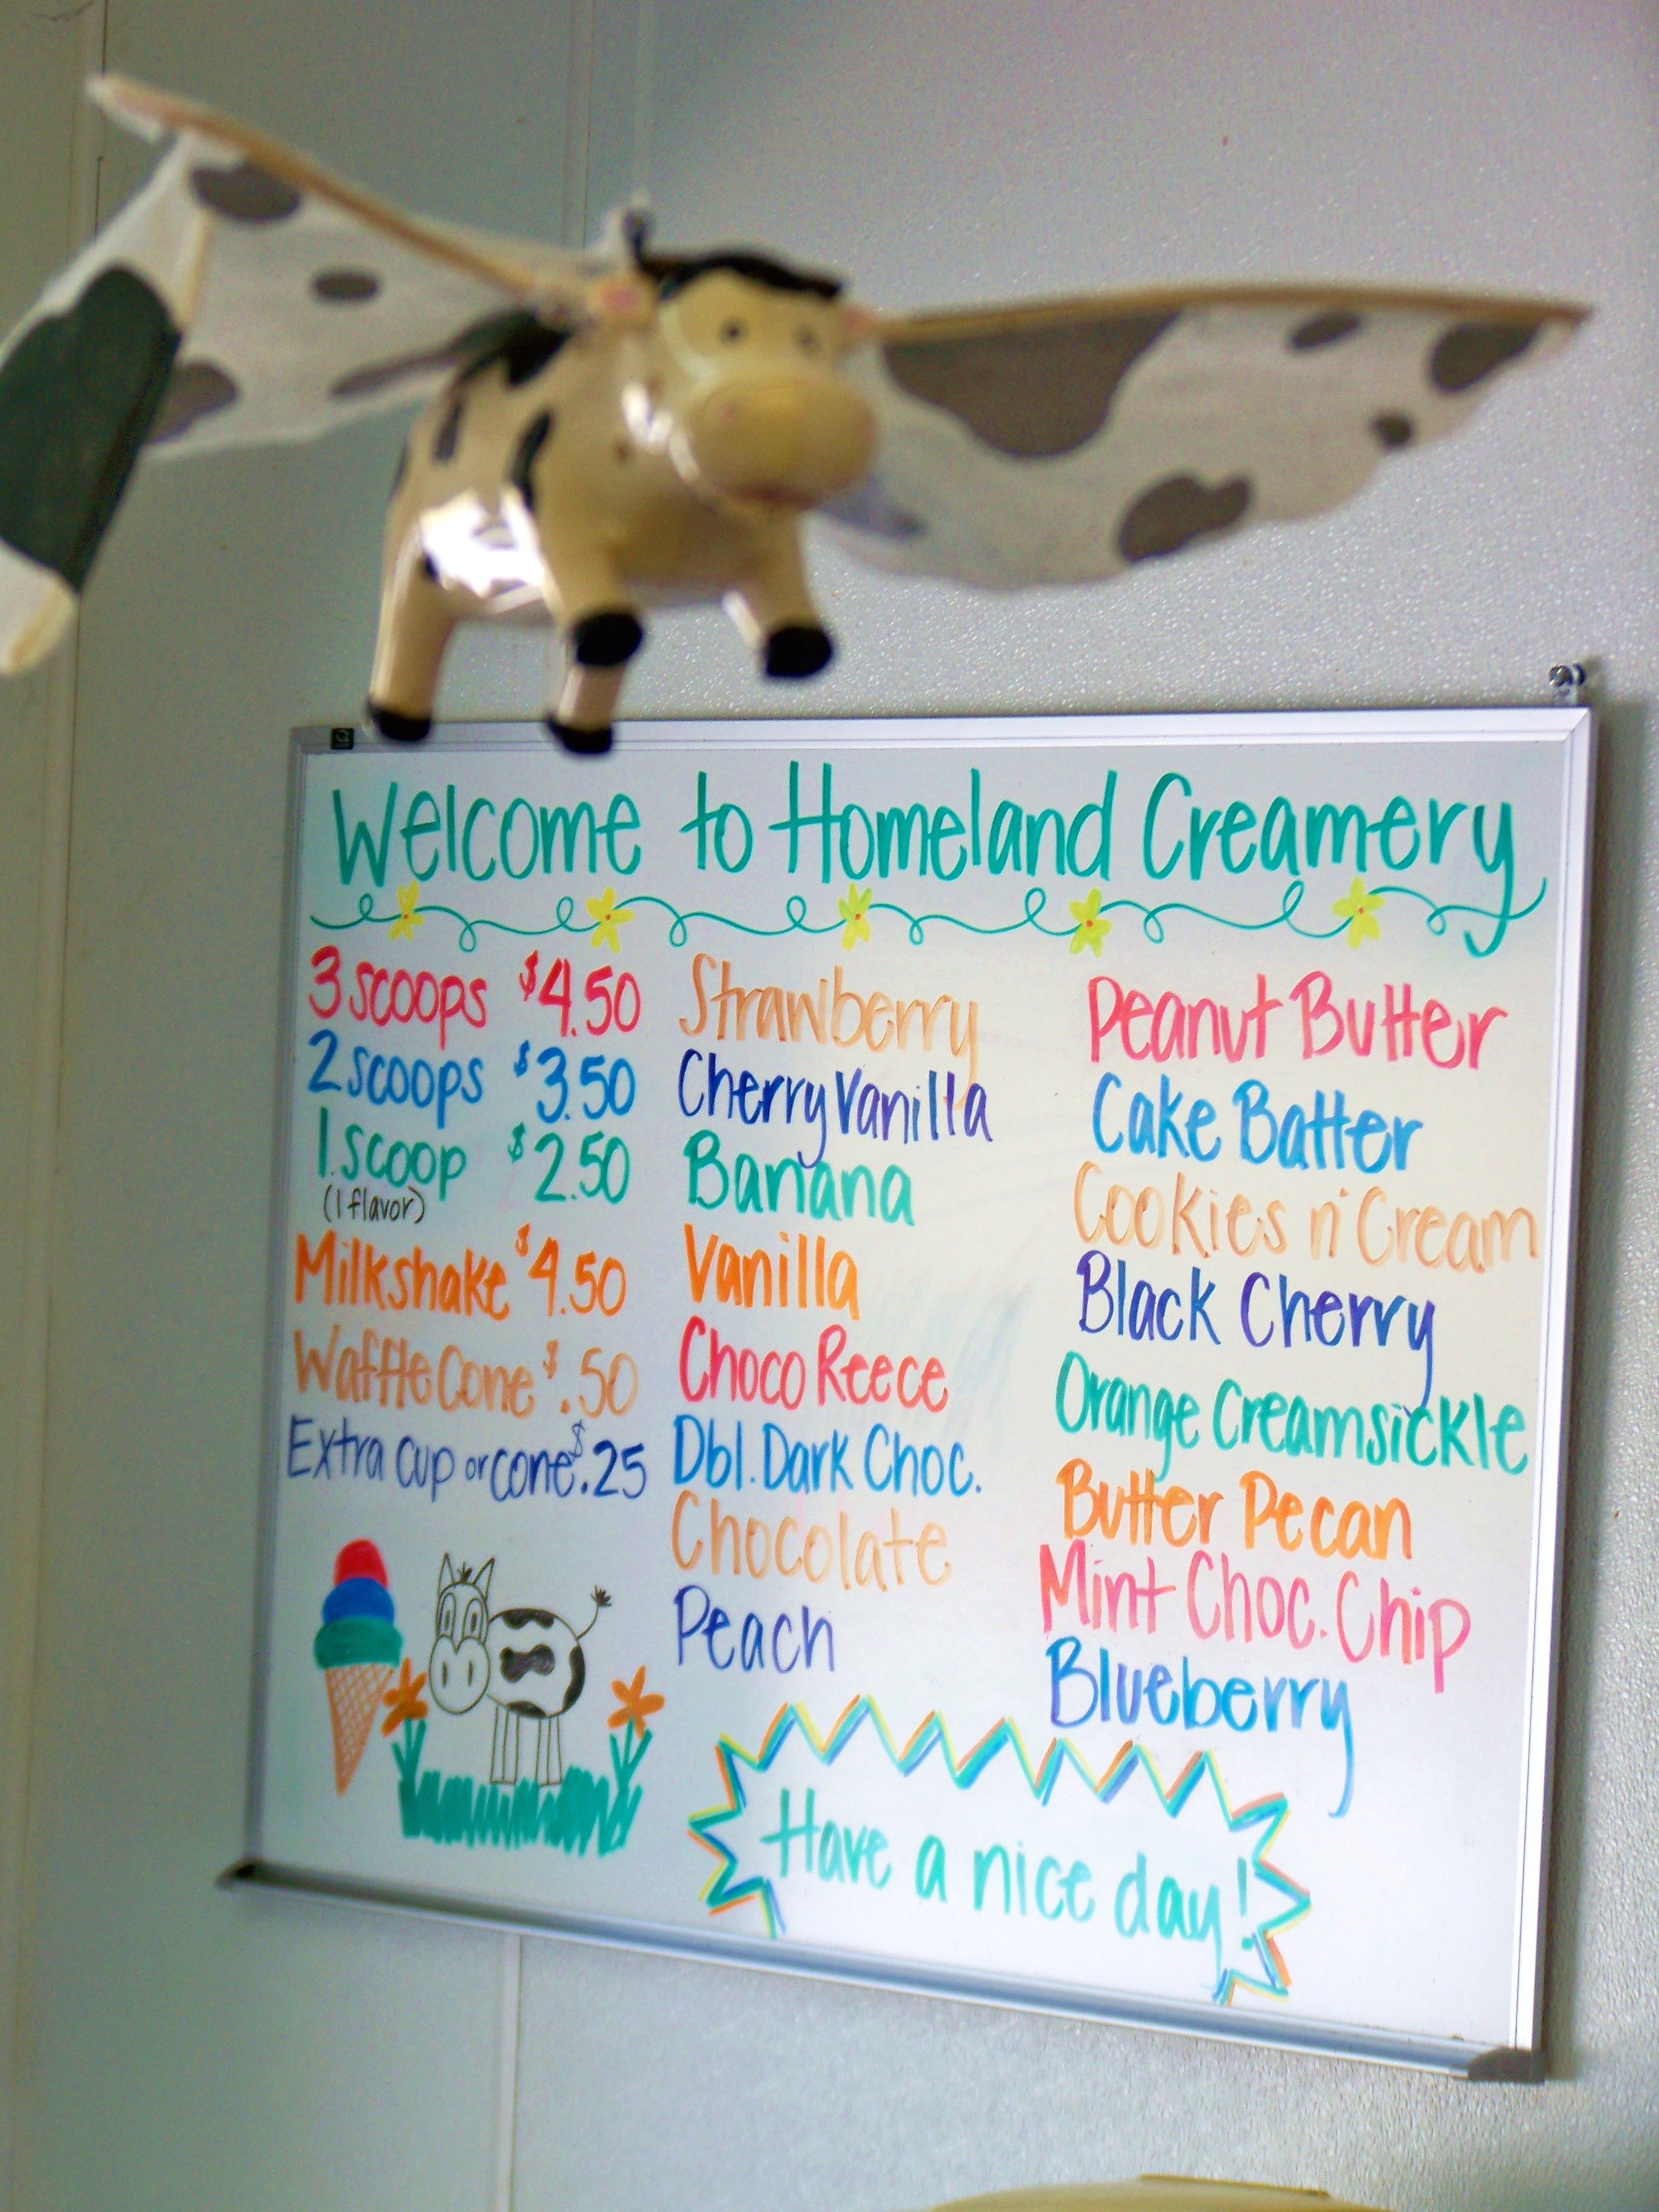 Welcome to Homeland Creamery
3 scoops $4.50
2 scoops $3.50
1 scoop $2.50
(1 flavor)
Milkshake $4.50
Waffle Cone $.50
Extra cup or cone $.25
Strawberry
Cherry Vanilla
Banana
Vanilla
Choco Reece
Dbl. Dark Choc.
Chocolate
Peach
Peanut Butter
Cake Batter
Cookies n' Cream
Black Cherry
Orange Creamsickle
Butter Pecan
Mint Choc. Chip
Blueberry
Have a nice day!